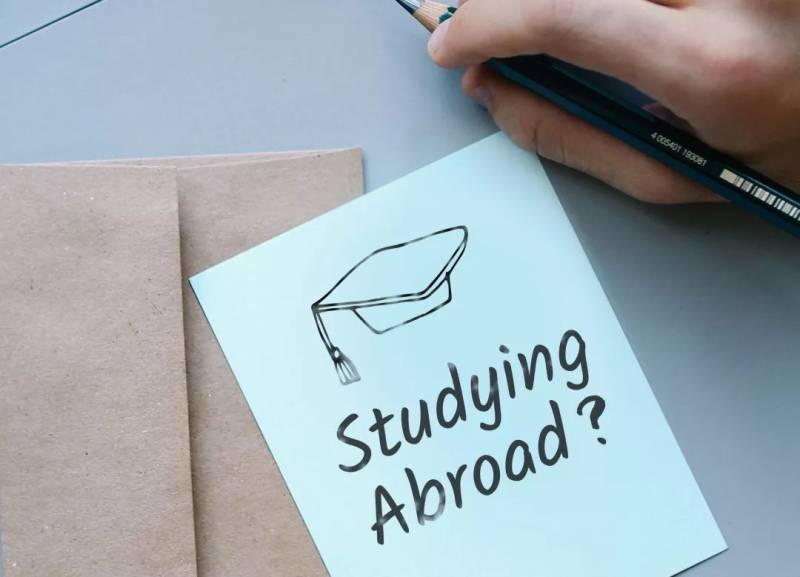 4 005401 193081
Studying
Abroad?